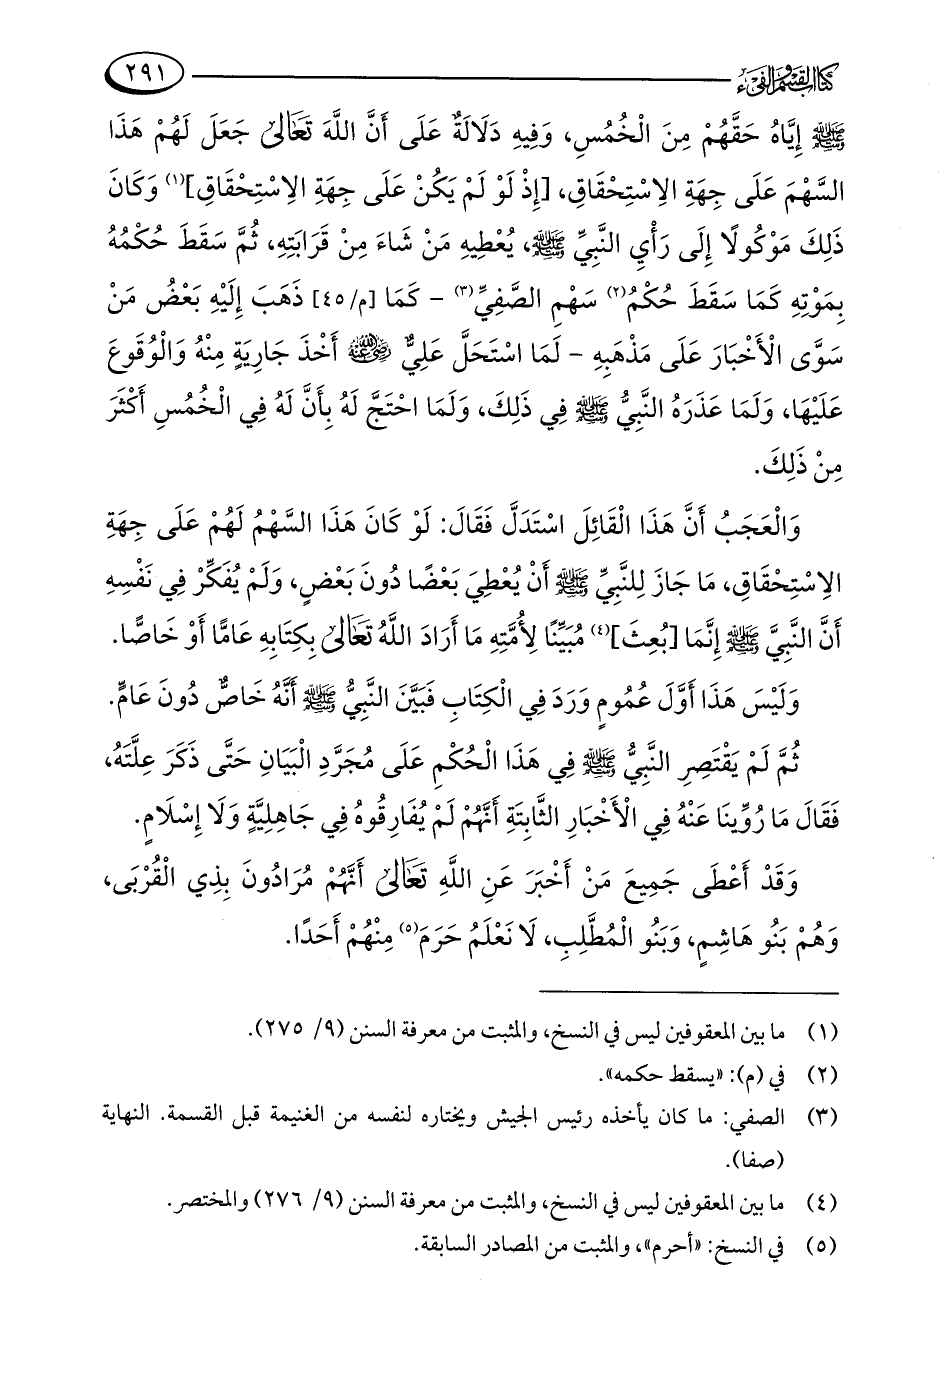 كتاب القسم والفيء ٢٩١
ﷺ إِيَّاهُ حَقَّهُمْ مِنَ الْخُمُسِ، وَفِيهِ دَلَالَةٌ عَلَى أَنَّ اللَّهَ تَعَالَى جَعَلَ لَهُمْ هَذَا
السَّهْمَ عَلَى جِهَةِ الِاسْتِحْقَاقِ، [إِذْ لَوْ لَمْ يَكُنْ عَلَى جِهَةِ الِاسْتِحْقَاقِ](١) وَكَانَ
ذَلِكَ مَوْكُولًا إِلَى رَأْيِ النَّبِيِّ ﷺ، يُعْطِيهِ مَنْ شَاءَ مِنْ قَرَابَتِهِ، ثُمَّ سَقَطَ حُكْمُهُ
بِمَوْتِهِ كَمَا سَقَطَ حُكْمُ(٢) سَهْمِ الصَّفِيِّ(٣) - كَمَا [م/٤٥] ذَهَبَ إِلَيْهِ بَعْضُ مَنْ
سَوَّى الْأَخْبَارَ عَلَى مَذْهَبِهِ - لَمَا اسْتَحَلَّ عَلِيٌّ رضي الله عنه أَخْذَ جَارِيَةٍ مِنْهُ وَالْوُقُوعَ
عَلَيْهَا، وَلَمَا عَذَرَهُ النَّبِيُّ ﷺ فِي ذَلِكَ، وَلَمَا احْتَجَّ لَهُ بِأَنَّ لَهُ فِي الْخُمُسِ أَكْثَرَ
مِنْ ذَلِكَ.
وَالْعَجَبُ أَنَّ هَذَا الْقَائِلَ اسْتَدَلَّ فَقَالَ: لَوْ كَانَ هَذَا السَّهْمُ لَهُمْ عَلَى جِهَةِ
الِاسْتِحْقَاقِ، مَا جَازَ لِلنَّبِيِّ ﷺ أَنْ يُعْطِيَ بَعْضًا دُونَ بَعْضٍ، وَلَمْ يُفَكِّرْ فِي نَفْسِهِ
أَنَّ النَّبِيَّ ﷺ إِنَّمَا [بُعِثَ](٤) مُبَيِّنًا لِأُمَّتِهِ مَا أَرَادَ اللَّهُ تَعَالَى بِكِتَابِهِ عَامًّا أَوْ خَاصًّا.
وَلَيْسَ هَذَا أَوَّلَ عُمُومٍ وَرَدَ فِي الْكِتَابِ فَبَيَّنَ النَّبِيُّ ﷺ أَنَّهُ خَاصٌّ دُونَ عَامٍّ.
ثُمَّ لَمْ يَقْتَصِرِ النَّبِيُّ ﷺ فِي هَذَا الْحُكْمِ عَلَى مُجَرَّدِ الْبَيَانِ حَتَّى ذَكَرَ عِلَّتَهُ،
فَقَالَ مَا رُوِّينَا عَنْهُ فِي الْأَخْبَارِ الثَّابِتَةِ أَنَّهُمْ لَمْ يُفَارِقُوهُ فِي جَاهِلِيَّةٍ وَلَا إِسْلَامٍ.
وَقَدْ أَعْطَى جَمِيعَ مَنْ أَخْبَرَ عَنِ اللَّهِ تَعَالَى أَنَّهُمْ مُرَادُونَ بِذِي الْقُرْبَى،
وَهُمْ بَنُو هَاشِمٍ، وَبَنُو الْمُطَّلِبِ، لَا نَعْلَمُ حَرَمَ(٥) مِنْهُمْ أَحَدًا.
(١) ما بين المعقوفين ليس في النسخ، والمثبت من معرفة السنن (٩/ ٢٧٥).
(٢) في (م): «يسقط حكمه».
(٣) الصفي: ما كان يأخذه رئيس الجيش ويختاره لنفسه من الغنيمة قبل القسمة. النهاية
(صفا).
(٤) ما بين المعقوفين ليس في النسخ، والمثبت من معرفة السنن (٩/ ٢٧٦) والمختصر.
(٥) في النسخ: «أحرم»، والمثبت من المصادر السابقة.